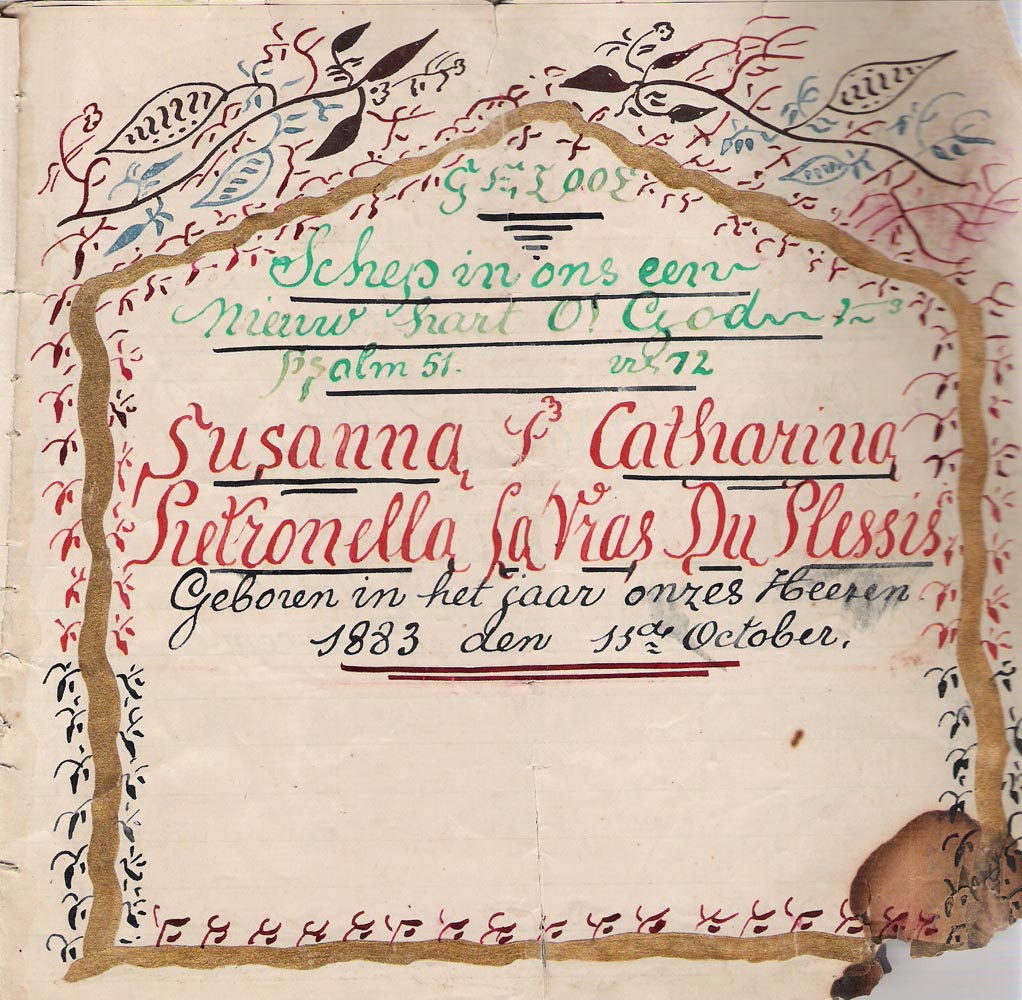 Schep in ons een
Nieuw hart O! God
Psalm 51. vrs 12
Susanna Catharina
Pietronella La Vras Du Plessis
Geboren in het jaar onzes Heeren
1883 den 11de October.